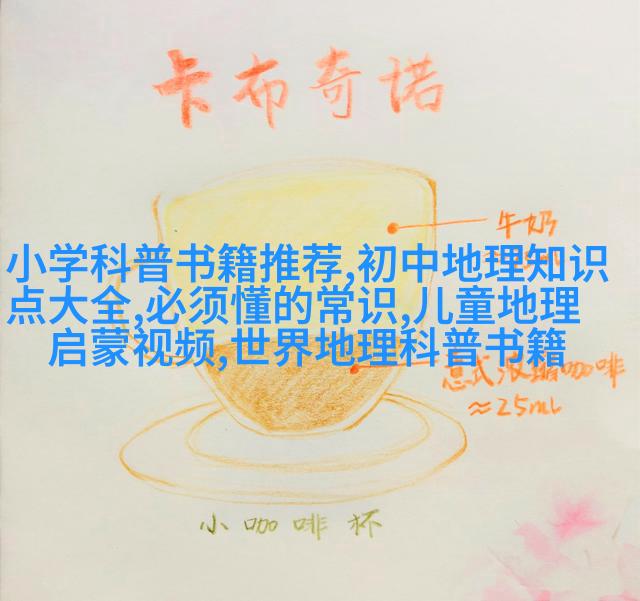 卡布奇诺
牛奶
小学科普书籍推荐,初中地理知识
点大全,必须懂的常识,儿童地理
启蒙视频,世界地理科普书籍
意式浓缩咖啡
≈25ml
小咖啡杯